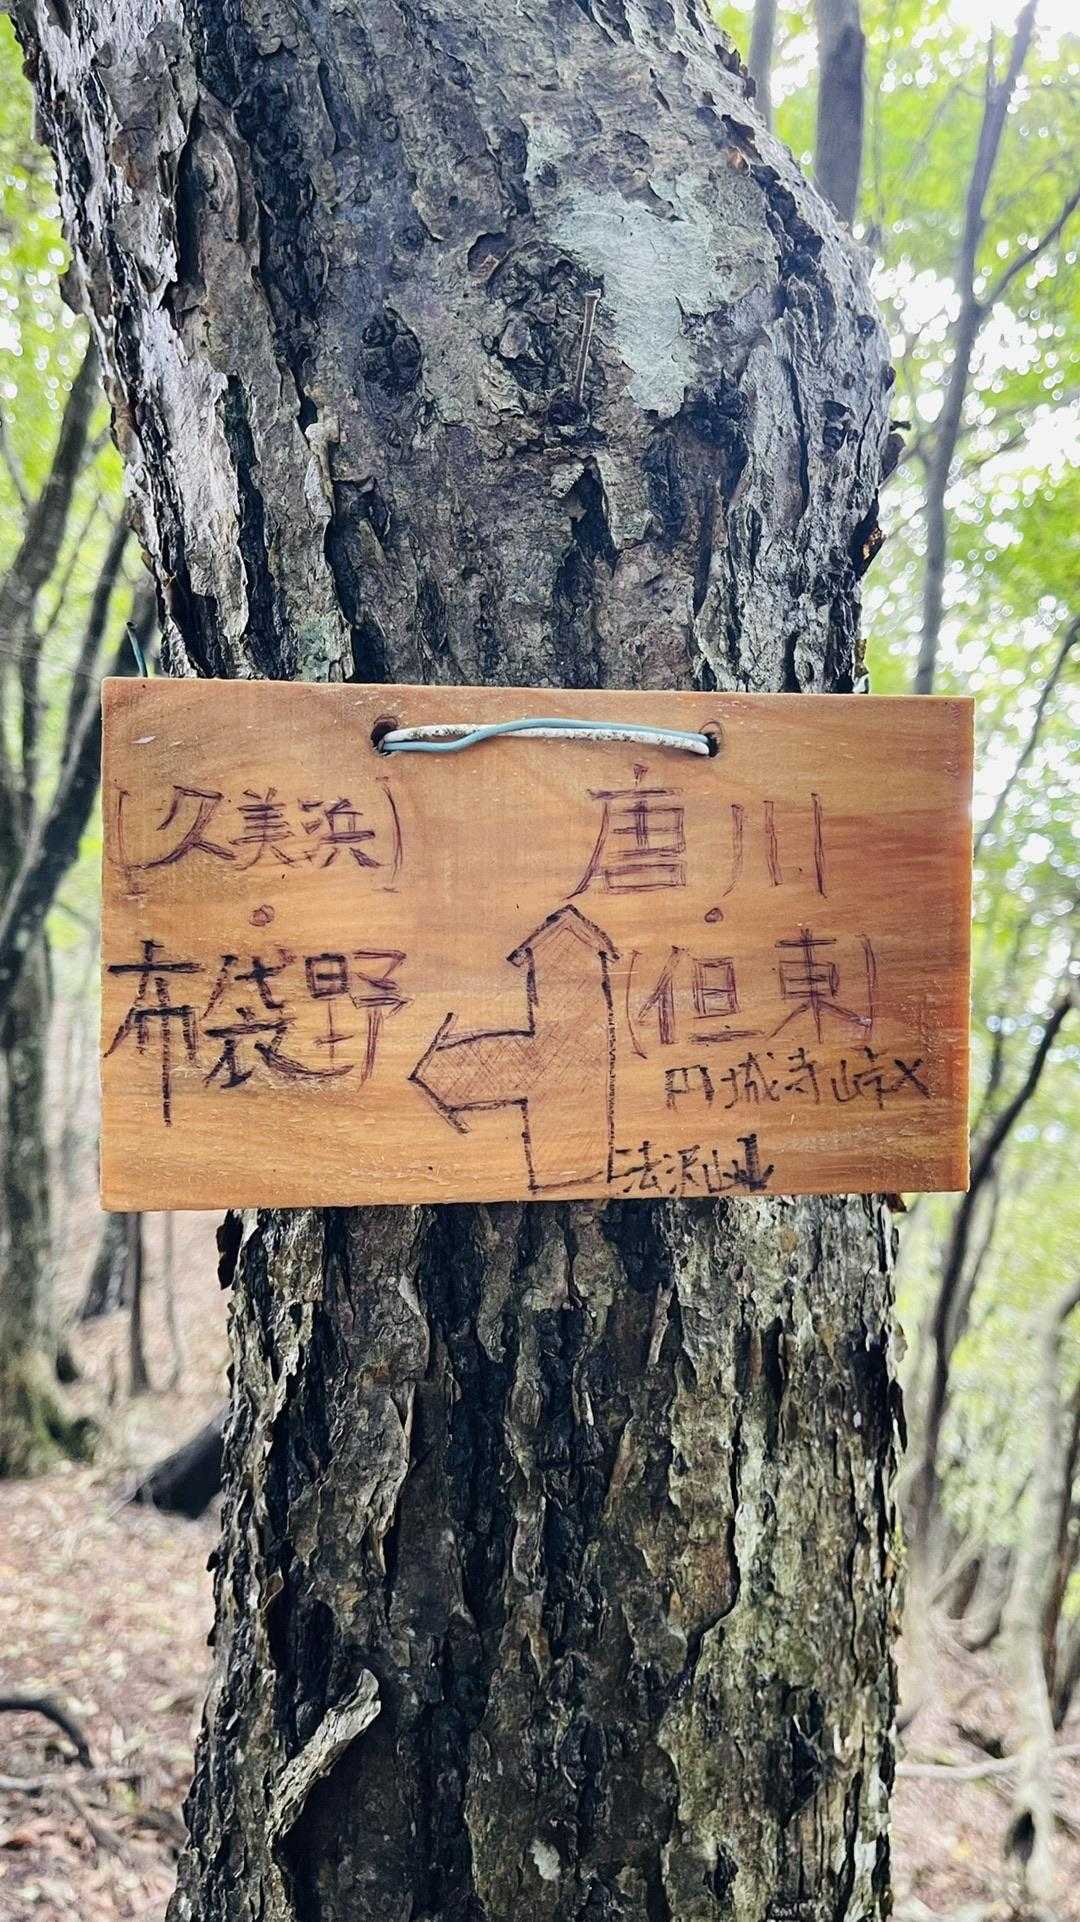 (久美浜)
・
布袋野
唐川
・
(但東)
円城寺峠×
法沢山↓